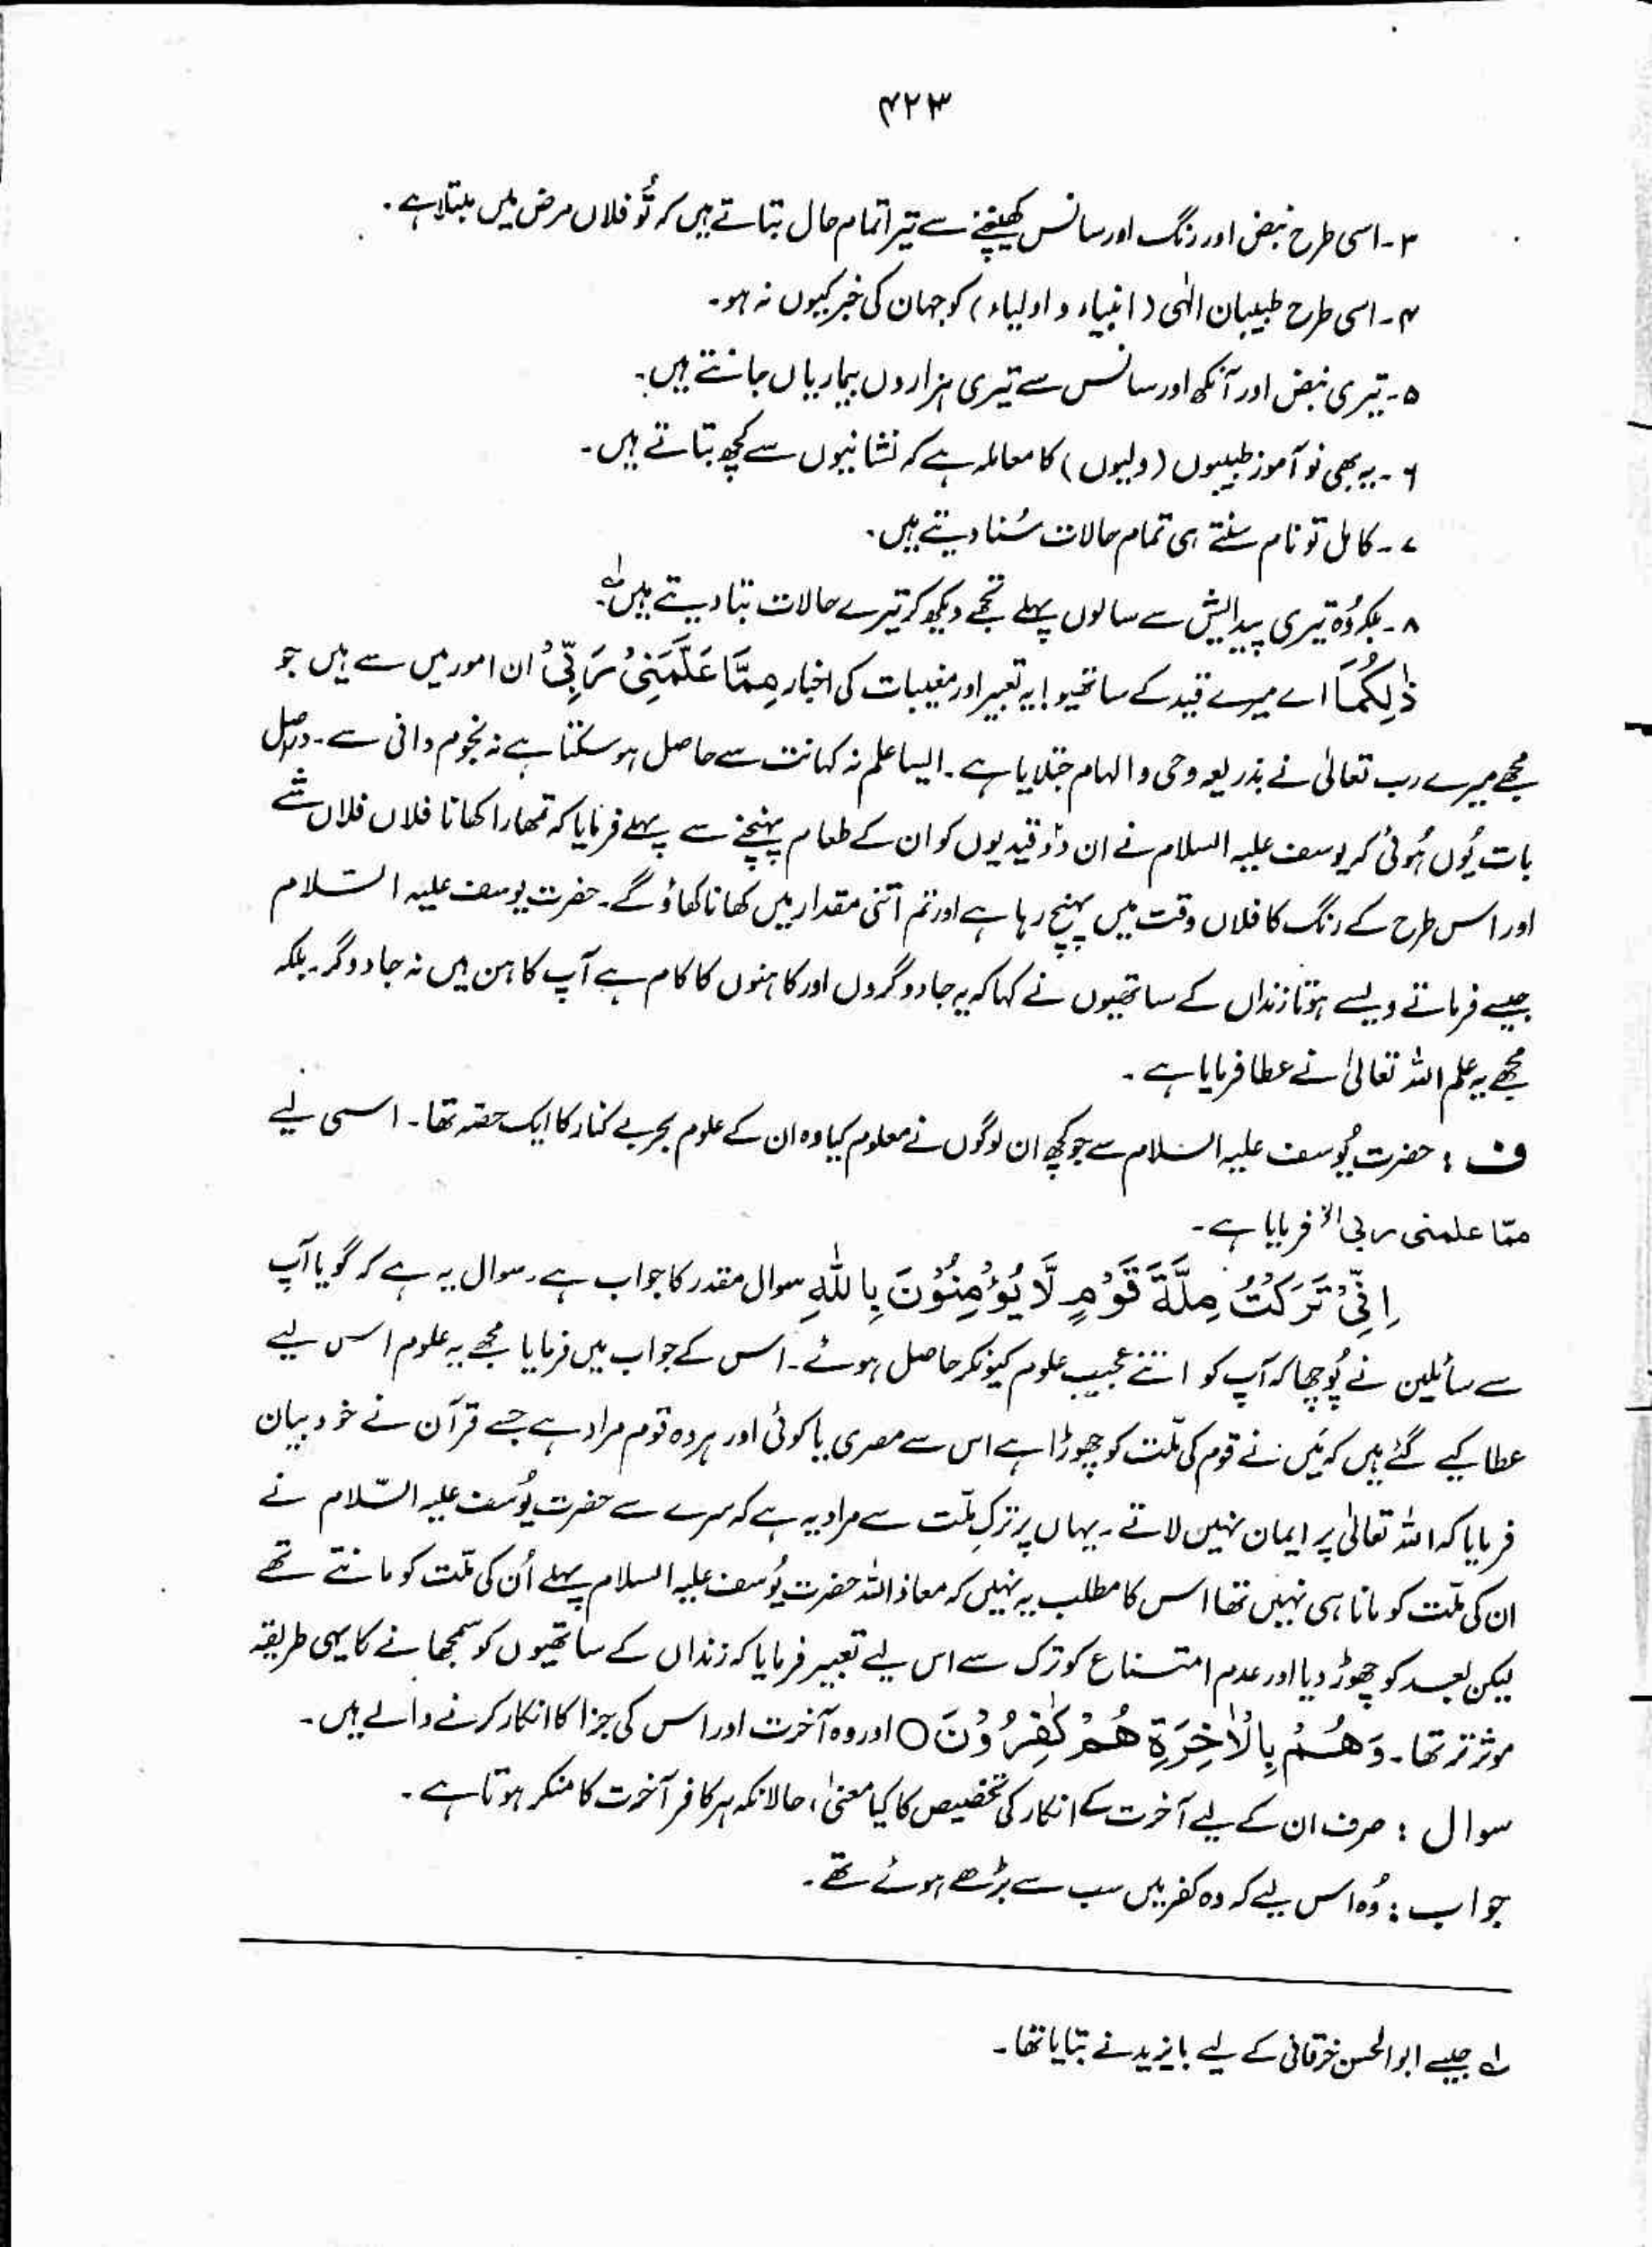 ۴۲۳
۳۔ اسی طرح نبض اور رنگ اور سانس کھینچنے سے تیرا تمام حال بتاتے ہیں کہ تُو فلاں مرض میں مبتلا ہے۔
۴۔ اسی طرح طبیبان الٰہی (انبیاء و اولیاء) کو جہان کی خبر کیوں نہ ہو۔
۵۔ تیری نبض اور آنکھ اور سانس سے تیری ہزاروں بیماریاں جانتے ہیں۔
۶۔ یہ بھی نو آموز طبیبوں (ولیوں) کا معاملہ ہے کہ نشانیوں سے کچھ بتاتے ہیں۔
۷۔ کامل تو نام سنتے ہی تمام حالات سُنا دیتے ہیں۔
۸۔ بلکہ وُہ تیری پیدایش سے سالوں پہلے تجھے دیکھ کر تیرے حالات بتا دیتے ہیں لہ۔
ذٰلِكُمَا اے میرے قید کے ساتھیو! یہ تعبیر اور مغیبات کی اخبار مِمَّا عَلَّمَنِیْ رَبِّیْ ان امور میں سے ہیں جو
مجھے میرے رب تعالیٰ نے بذریعہ وحی و الہام جتلایا ہے۔ ایسا علم نہ کہانت سے حاصل ہو سکتا ہے نہ نجوم دانی سے۔ دراصل
بات یُوں ہُوئی کہ یوسف علیہ السلام نے ان دو قیدیوں کو ان کے طعام پہنچنے سے پہلے فرمایا کہ تمھارا کھانا فلاں فلاں شے
اور اس طرح کے رنگ کا فلاں وقت میں پہنچ رہا ہے اور تم اتنی مقدار میں کھانا کھاؤ گے۔ حضرت یوسف علیہ السّلام
جیسے فرماتے ویسے ہوتا زنداں کے ساتھیوں نے کہا کہ یہ جادوگروں اور کاہنوں کا کام ہے آپ کاہن ہیں نہ جادوگر۔ بلکہ
مجھے یہ علم اللہ تعالیٰ نے عطا فرمایا ہے۔
ف : حضرت یُوسف علیہ السلام سے جو کچھ ان لوگوں نے معلوم کیا وہ ان کے علوم بحر بے کنار کا ایک حصّہ تھا۔ اسی لیے
ممّا علمنی ربی الخ فرمایا ہے۔
اِنِّیْ تَرَكْتُ مِلَّةَ قَوْمٍ لَّا یُؤْمِنُوْنَ بِاللّٰهِ سوال مقدر کا جواب ہے۔ سوال یہ ہے کہ گویا آپ
سے سائلین نے پُوچھا کہ آپ کو اتنے عجیب علوم کیونکر حاصل ہوئے۔ اس کے جواب میں فرمایا مجھے یہ علوم اس لیے
عطا کیے گئے ہیں کہ مَیں نے قوم کی ملّت کو چھوڑا ہے اس سے مصری یا کوئی اور ہر وہ قوم مراد ہے جسے قرآن نے خود بیان
فرمایا کہ اللہ تعالیٰ پر ایمان نہیں لاتے۔ یہاں پر ترکِ ملّت سے مراد یہ ہے کہ سرے سے حضرت یُوسف علیہ السّلام نے
ان کی ملّت کو مانا ہی نہیں تھا اس کا مطلب یہ نہیں کہ معاذ اللہ حضرت یُوسف علیہ السلام پہلے اُن کی ملّت کو مانتے تھے
لیکن بعد کو چھوڑ دیا اور عدم امتناع کو ترک سے اس لیے تعبیر فرمایا کہ زنداں کے ساتھیوں کو سمجھانے کا یہی طریقہ
موثر تر تھا۔ وَهُمْ بِالْاٰخِرَةِ هُمْ كٰفِرُوْنَ○ اور وہ آخرت اور اس کی جزا کا انکار کرنے والے ہیں۔
سوال : صرف ان کے لیے آخرت کے انکار کی تخصیص کا کیا معنیٰ، حالانکہ ہر کافر آخرت کا منکر ہوتا ہے۔
جواب : وُہ اس لیے کہ وہ کفر میں سب سے بڑھے ہوئے تھے۔
لہ جیسے ابوالحسن خرقانی کے لیے بایزید نے بتایا تھا۔